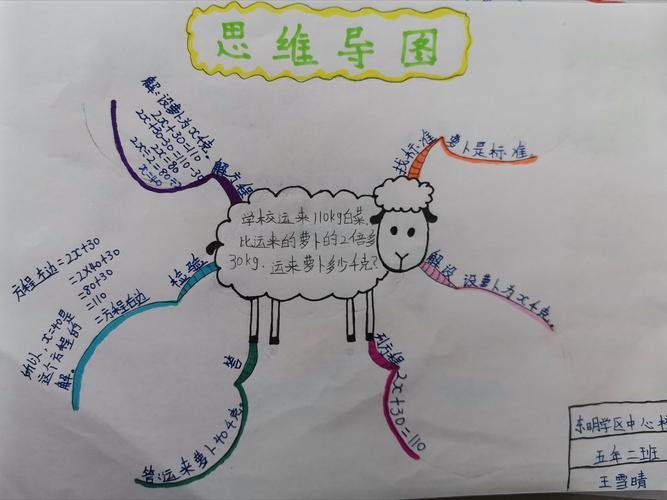 思维导图
学校运来110kg白菜,
比运来的萝卜的2倍多
30kg.运来萝卜多少千克?
找标准
萝卜是标准。
解设
设萝卜为x千克。
列方程
2x+30=110
解方程
解:设萝卜为x千克。
2x+30=110
2x+30-30=110-30
2x=80
2x÷2=80÷2
x=40
检验
方程左边=2x+30
=2×40+30
=80+30
=110
=方程右边
所以,x=40是
这个方程的
解。
答
答:运来萝卜40千克。
东明学区中心校
五年二班
王雪晴